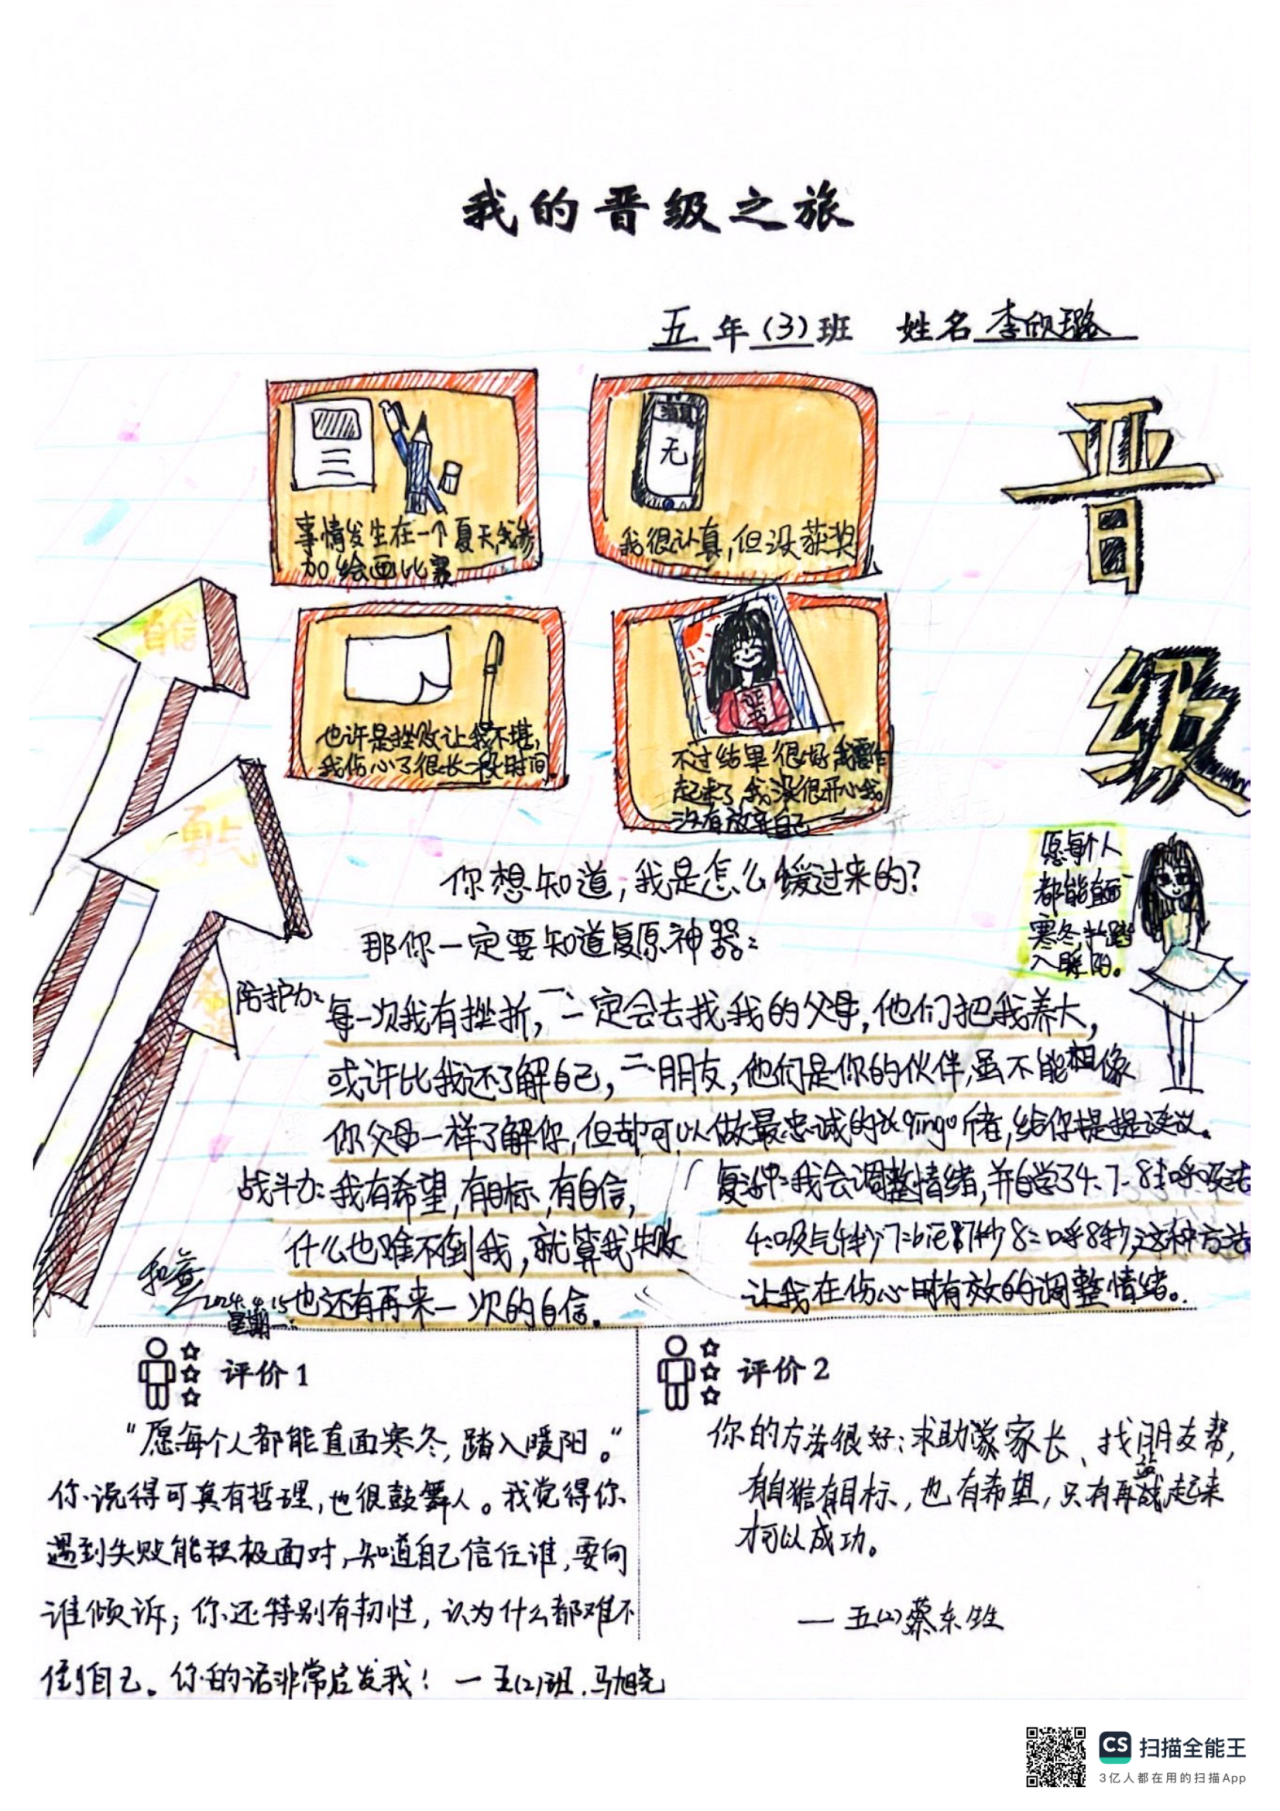 我的晋级之旅
五年(3)班 姓名李欣璐
事情发生在一个夏天,我参
加绘画比赛
消息
无
我很认真,但没获奖
也许是挫败让我不堪,
我伤心了很长一段时间
证书
不过结果很好我
起来了我没很开心我
没有放弃自己
晋
级
自信
勇气
希望
愿每个人
都能直面
寒冬,并踏
入暖阳。
你想知道,我是怎么缓过来的?
那你一定要知道复原神器:
陪护力:每一次我有挫折,一一定会去找我的父母,他们把我养大,
或许比我还了解自己,二朋友,他们是你的伙伴,虽不能想像
你父母一样了解你,但却可以做最忠诚的qing者,给你提提议。
战斗力:我有希望,有目标,有自信,
什么也难不倒我,就算我失败
也还有再来一次的自信。
复冲:我会调整情绪,并自学了4-7-8呼吸法
4:吸气4秒,7=bie气7秒8=呼8秒,这种方法
让我在伤心时有效的调整情绪。
2024.4.15
星期一
评价1
“愿每个人都能直面寒冬,踏入暖阳。”
你说得可真有哲理,也很鼓舞人。我觉得你
遇到失败能积极面对,知道自己信任谁,要向
谁倾诉;你还特别有韧性,认为什么都难不
住自己。你的话非常启发我! 一五(2)班.马旭尧
评价2
你的方法很好:求助家长、找朋友帮,
有自信有目标,也有希望,只有再站起来
才可以成功。
一五(2)蔡东
CS 扫描全能王
3亿人都在用的扫描App